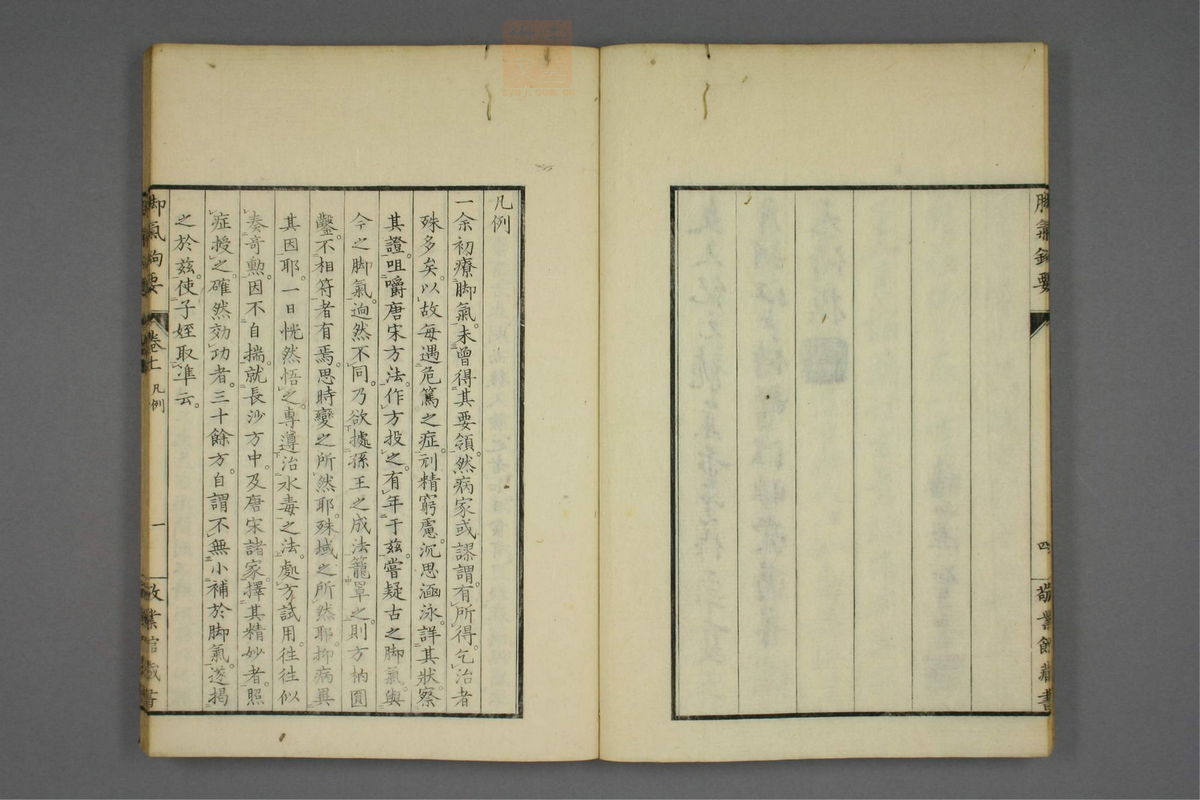 脚氣鉤要
四
敬業館藏書
凡例
一余初療脚氣。未曾得其要領。然病家或謬謂有所得。乞治者
殊多矣。以故每遇危篤之症。刓精窮慮。沉思涵泳。詳其狀。察
其證。咀嚼唐宋方法。作方投之。有年于茲。嘗疑古之脚氣。與
今之脚氣。逈然不同。乃欲據孫王之成法籠罩之。則方枘圓
鑿。不相符者有焉。思時變之所然耶。殊域之所然耶。抑病異
其因耶。一日恍然悟之。專遵治水毒之法。處方試用。往往似
奏奇勳。因不自揣。就長沙方中。及唐宋諸家。擇其精妙者。照
症授之。確然効功者。三十餘方。自謂不無小補於脚氣。遂揭
之於茲。使子姪取凖云。
脚氣鉤要
卷上 凡例
一
敬業館藏書